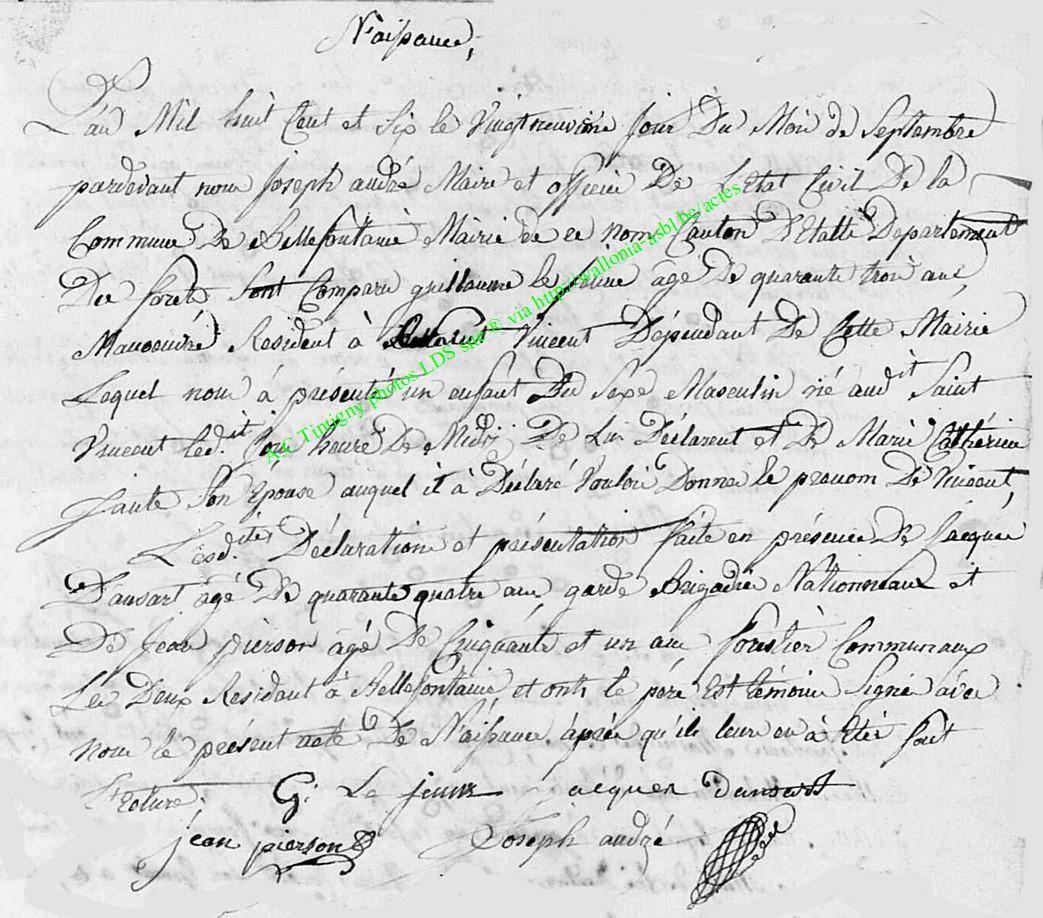 Naissance,
L'an Mil huit Cent et Six le Vingtneuvième jour Du Mois de Septembre
pardevant nous Joseph andré Maire et officier De L'Etat Civil De la
Commune De Bellefontaine Mairie de ce nom, Canton D'Etalle Departement
Des forets Sont Comparu guillaume le Jeune agé De quarante trois ans,
Résident à Saint Vincent Dépendant De Cette Mairie
Lequel nous à présenté un enfant Du Sexe Masculin né audit Saint
Vincent led.it jour heure De Midy, De Lui Déclarent et De Marie Catherine
Son Epouse auquel il à Déclaré Vouloir Donner le prenom De Vincent,
Lesd.ites Déclaration et présentation faite en présence De Jacques
Dansart agé De quarante quatre ans garde Brigadier Nationnaux et
De Jean pierson âgé De Cinquante et un ans forestier Communaux
Les Deux Residant à Bellefontaine et onts le père Est témoins Signé avec
nous le présent acte De Naissance, après qu'ils leurs en à Etér fait
Lecture.
G. Le jeune Jacques Dansart
jean pierson Joseph andré
A.C Tintigny photos LDS sprl® via http://wallonia-asbl.be/actes